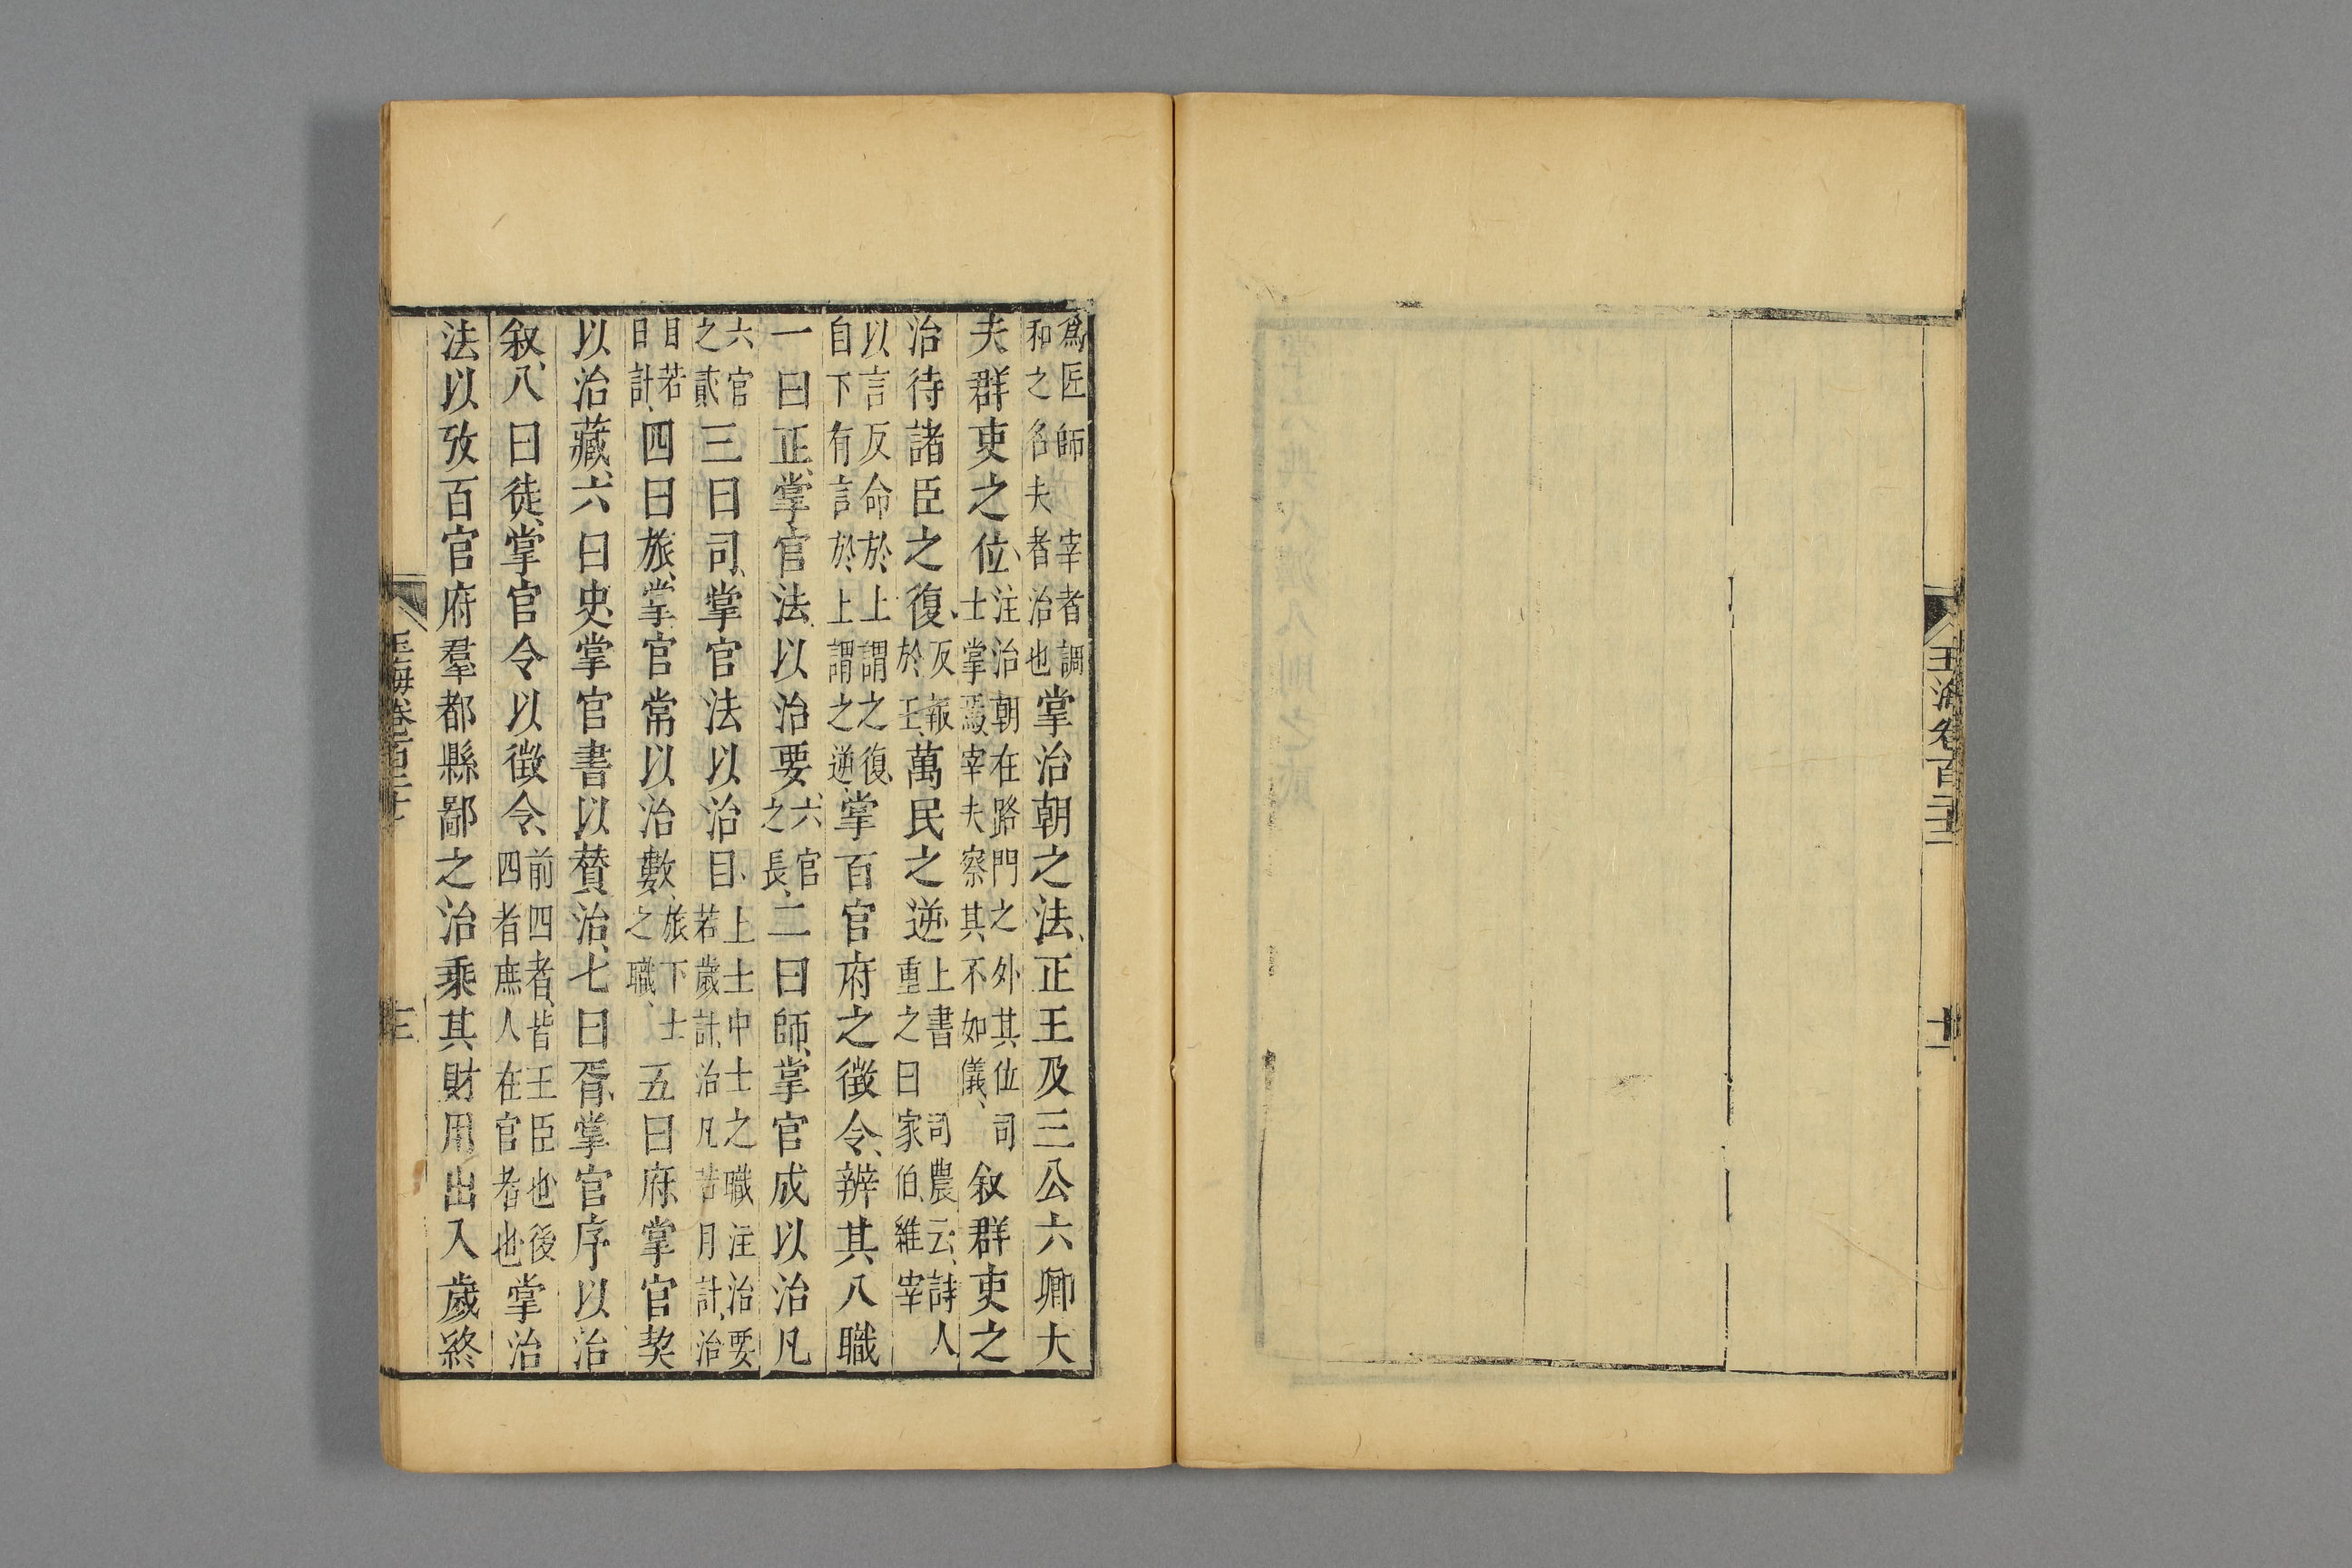 玉海卷百二十二
十二
爲匠師宰者調
和之名夫者治也
掌治朝之法正王及三公六卿大
夫群吏之位
注治朝在路門之外其位司
士掌焉宰夫察其不如儀
叙群吏之
治待諸臣之復
反報
於王
萬民之逆
上書司農云詩人
重之曰家伯維宰
以言反命於上謂之復
自下有言於上謂之逆
掌百官府之徵令辨其八職
一曰正掌官法以治要
六官
之長
二曰師掌官成以治凡
六官
之貳
三曰司掌官法以治目
上士中士之職注治要
若歲計治凡若月計治
目若
日計
四曰旅掌官常以治數
旅下士
之職
五曰府掌官契
以治藏六曰史掌官書以贊治七曰胥掌官序以治
叙八曰徒掌官令以徵令
前四者皆王臣也後
四者庶人在官者也
掌治
法以攷百官府羣都縣鄙之治乘其財用出入歲終